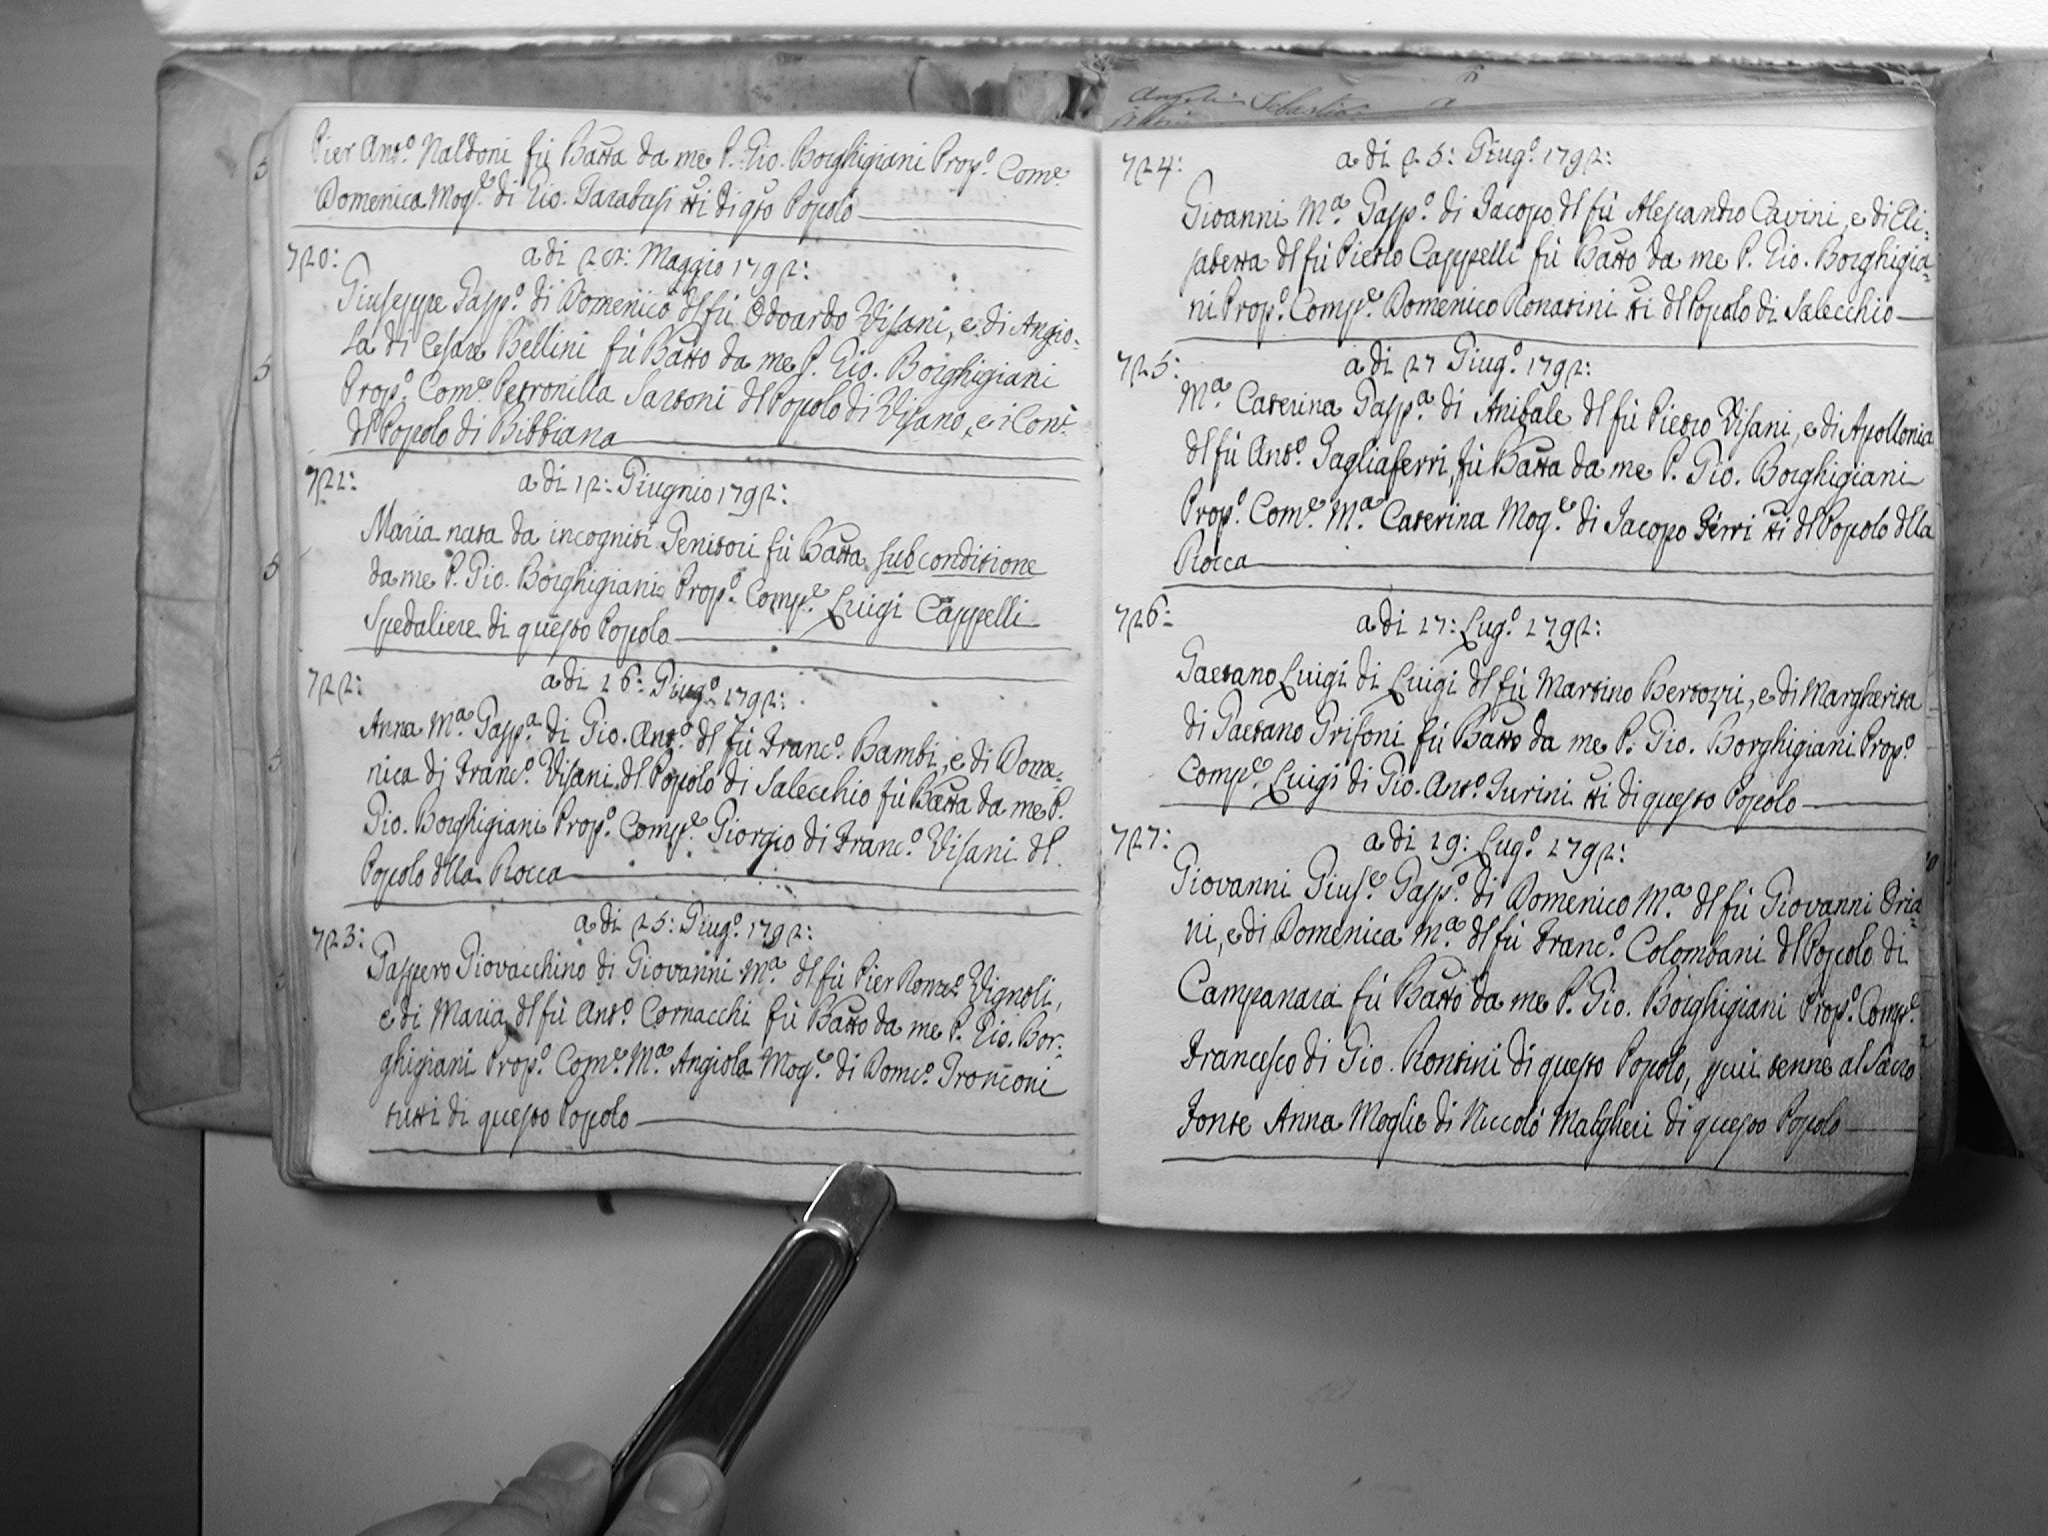 Angelin Sebastian
Pier Ant.º Naldoni fù Batta da me P. Gio. Borghigiani Prop.º Com.e
Domenica Mog.e di Gio. Tarabusi tti di qto Popolo
720:
a di 22: Maggio 1792:
Giuseppe Gasp.º di Domenico dl fù Odoardo Visani, e di Angio=
la di Cesare Bellini fù Batto da me P. Gio. Borghigiani
Prop.º Com.e Petronilla Sartoni dl Popolo di Visano, e i Con.
dl Popolo di Bibbiana
721:
a di 12: Giugnio 1792:
Maria nata da incogniti Genitori fù Batta sub conditione
da me P. Gio. Borghigiani Prop.º Comp.e Luigi Cappelli
Spedaliere di questo Popolo
722:
a di 16: Giug.º 1792:
Anna M.a Gasp.a di Gio. Ant.º dl fù Franc.º Bambi, e di Dome=
nica di Franc.º Visani dl Popolo di Salecchio fù Batta da me P.
Gio. Borghigiani Prop.º Comp.e Giorgio di Franc.º Visani dl
Popolo dlla Rocca
723:
a di 25: Giug.º 1792:
Gaspero Giovacchino di Giovanni M.a dl fù Pier Rom.º Vignoli,
e di Maria dl fù Ant.º Cornacchi fù Batto da me P. Gio. Bor=
ghigiani Prop.º Com.e M.a Angiola Mog.e di Dom.º Tronconi
tutti di questo Popolo
724:
a di 25: Giug.º 1792:
Gioanni M.a Gasp.º di Jacopo dl fù Alessandro Cavini, e di Eli=
sabetta dl fù Pietro Cappelli fù Batto da me P. Gio. Borghigia=
ni Prop.º Comp.e Domenico Ronatini tti dl Popolo di Salecchio
725:
a di 27 Giug.º 1792:
M.a Caterina Gasp.a di Anibale dl fù Pietro Visani, e di Apollonia
dl fù Ant.º Tagliaferri, fù Batta da me P. Gio. Borghigiani
Prop.º Com.e M.a Caterina Mog.e di Jacopo Ferri tti dl Popolo dlla
Rocca
726:
a di 17: Lug.º 1792:
Gaetano Luigi di Luigi dl fù Martino Bertozzi, e di Margherita
di Gaetano Grifoni fù Batto da me P. Gio. Borghigiani Prop.º
Comp.e Luigi di Gio. Ant.º Turini tti di questo Popolo
727:
a di 19: Lug.º 1792:
Giovanni Gius.e Gasp.º di Domenico M.a dl fù Giovanni Oria=
ni, e di Domenica M.a dl fù Franc.º Colombani dl Popolo di
Campanara fù Batto da me P. Gio. Borghigiani Prop.º Comp.e
Francesco di Gio. Rontini di questo Popolo, p cui tenne al Sacro
Fonte Anna Moglie di Niccolò Malgheri di questo Popolo